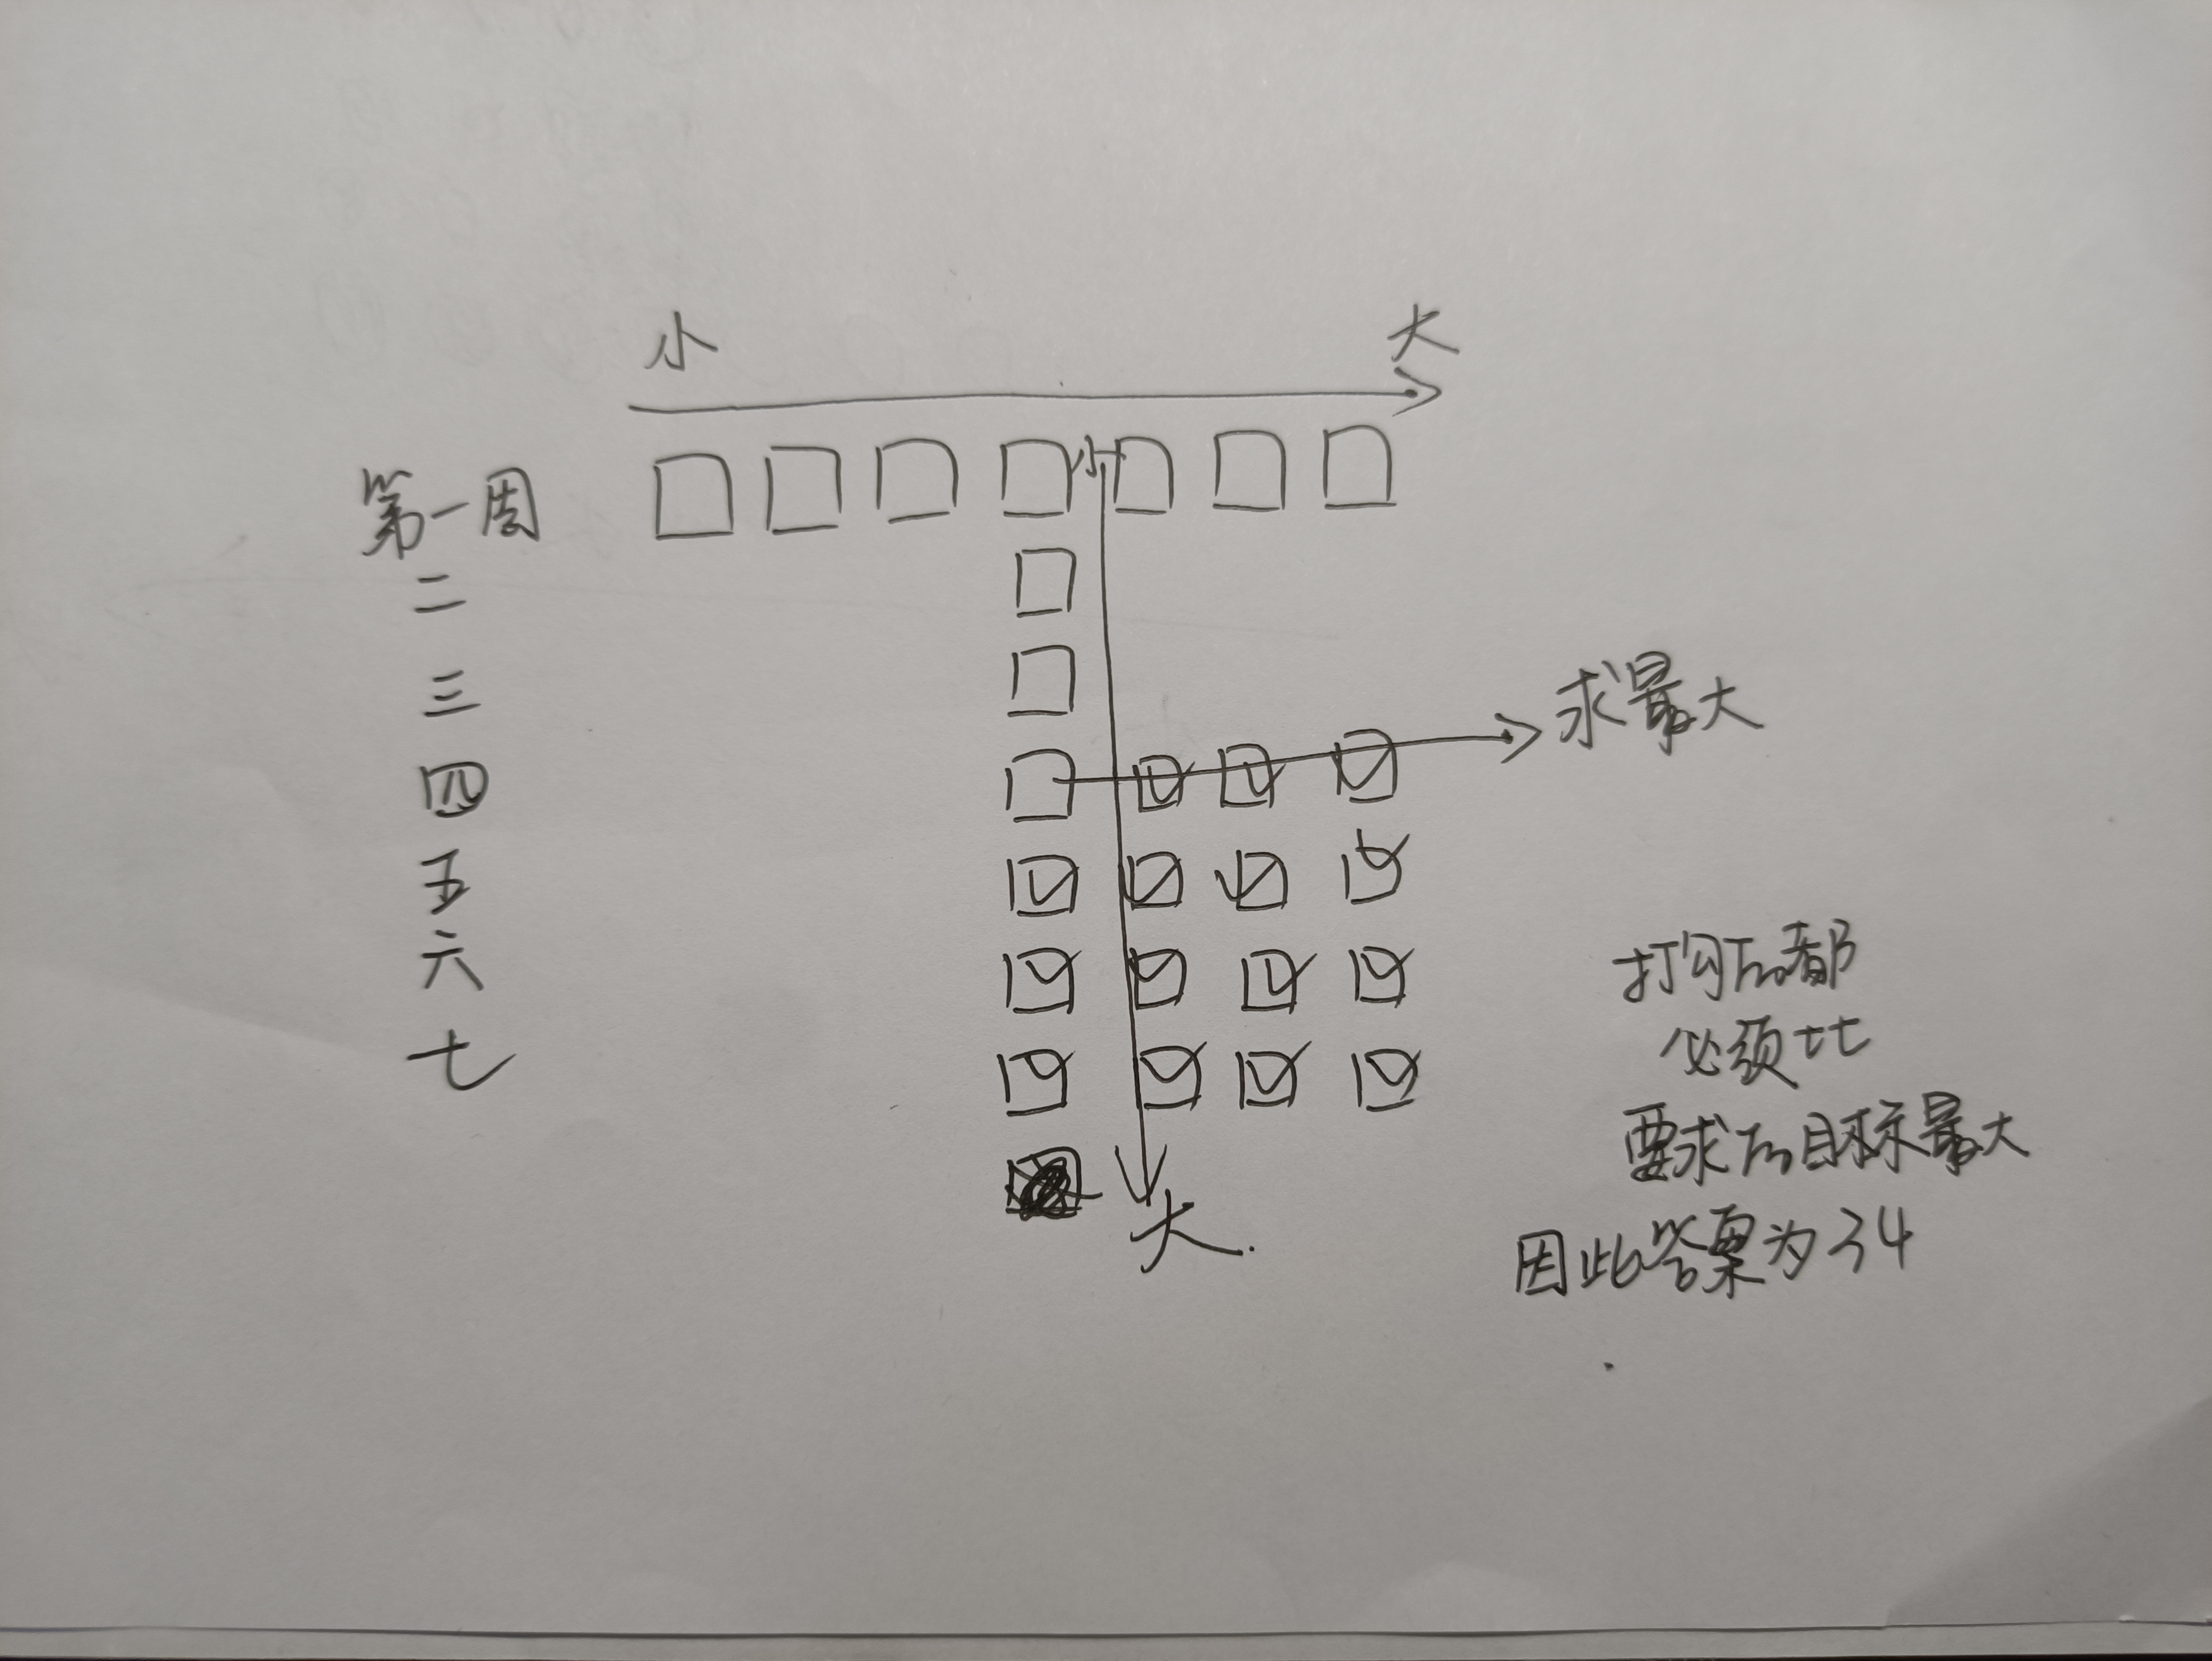 小 大
第一周
小
二
三
求最大
四
五
六
打勾的都
七
必须比
要求的目标最大
大.
因此答案为34